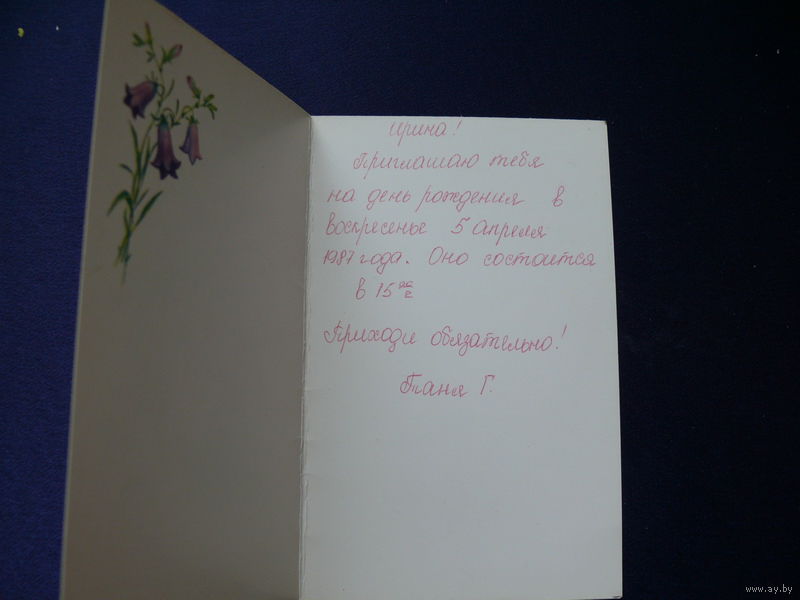 Ирина!
Приглашаю тебя
на день рождения в
воскресенье 5 апреля
1987 года. Оно состоится
в 15 00
Приходи обязательно!
Таня Г.
www.ay.by